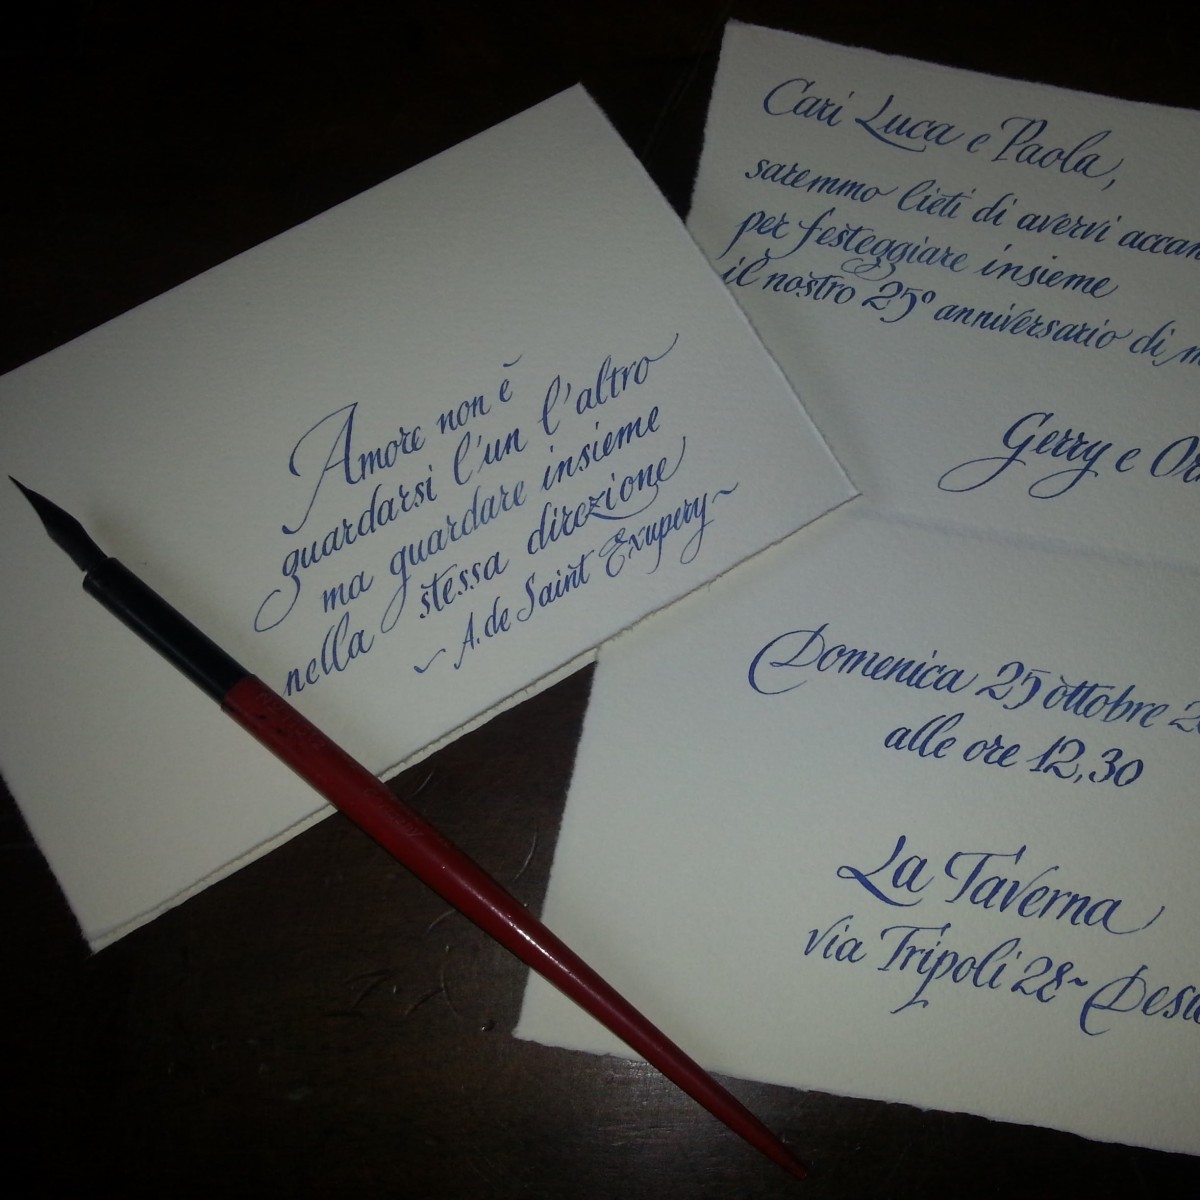 Amore non è
guardarsi l'un l'altro
ma guardare insieme
nella stessa direzione
~ A. de Saint Exupery ~
Cari Luca e Paola,
saremmo lieti di avervi accan
per festeggiare insieme
il nostro 25° anniversario di m
Gerry e Or
Domenica 25 ottobre 2
alle ore 12,30
La Taverna
via Tripoli 28 ~ Des